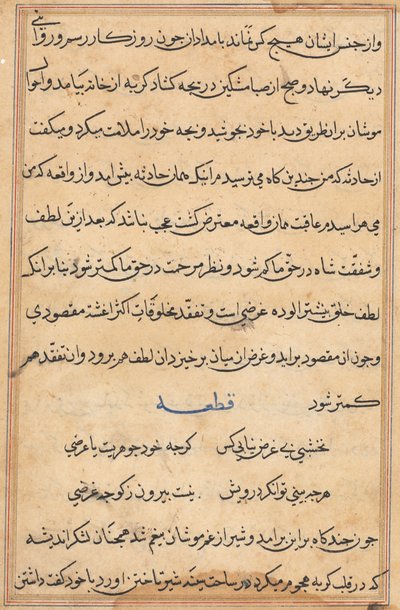 و از جنس ایشان هیچ کس نماند بامدادان چون روزگار رسم و رو
دیگر نهاد و صبح از صبا مشکین دریچه کشاد گربه از خانه بیامد و احوال
موشان بران طریق دید با خود بجوشید و بچه خود را ملامت میکرد و میگفت
از حادثه که من چندین کاه می ترسیدم اینک همان حادثه پیش امد و از واقعه که من
می هراسیدم عاقبت همان واقعه معترض کشت عجب نباشد که بعد ازین لطف
و شفقت شاه در حق ما کم شود و نظر مرحمت در حق ما کمتر شود بنا برانک
لطف خلق بیشتر الوده عرضی است و تفقد مخلوقات اکثر اغشته مقصودی
و چون ان مقصود براید و غرض از میان برخیزد ان لطف هم برود و ان تفقد هم
کمتر شود قطعه
نخشبی بی غرض نیابی کس کرچه خود جوهریت یا عرضی
هرچه بینی توانکر و درویش نیست بیرون ز کوچه غرضی
چون چند کاه برین برامد و شیر از غم موشان بیغم شد همچنان لشکر اندیشه
که در قلب گربه هجوم میکرد در ساحت سینه شیر تاختن اورد با خود گفت داشتن